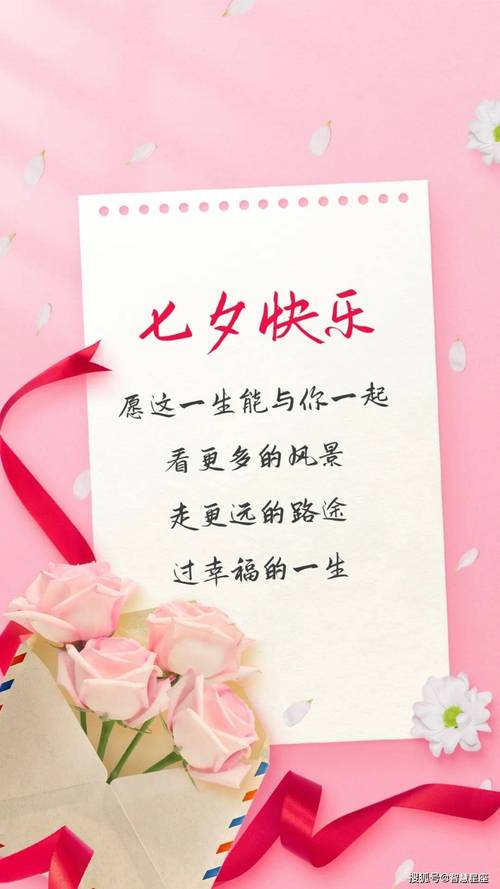 七夕快乐
愿这一生能与你一起
看更多的风景
走更远的路途
过幸福的一生
搜狐号@智慧星座